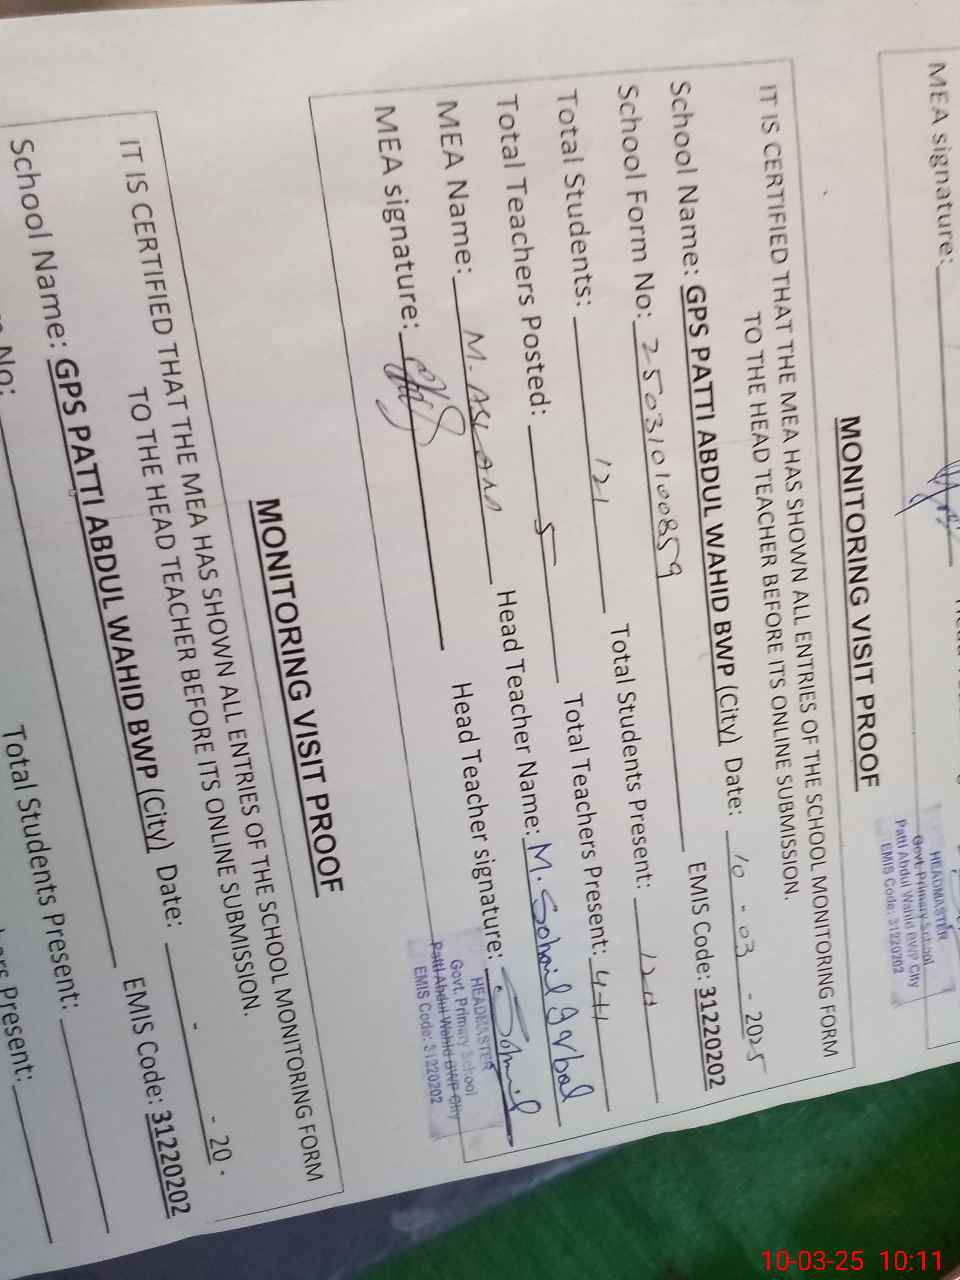 MEA signature:
HEADMASTER
Govt. Primary School
Patti Abdul Wahid BWP City
EMIS Code: 31220202
MONITORING VISIT PROOF
IT IS CERTIFIED THAT THE MEA HAS SHOWN ALL ENTRIES OF THE SCHOOL MONITORING FORM
TO THE HEAD TEACHER BEFORE ITS ONLINE SUBMISSION.
School Name: GPS PATTI ABDUL WAHID BWP (City) Date: 10 - 03 - 2025
School Form No: 250310100859 EMIS Code: 31220202
Total Students: 121 Total Students Present:
Total Teachers Posted: 5 Total Teachers Present: 4+1
MEA Name: M. Aslam Head Teacher Name: M. Sohail Iqbal
MEA signature: Head Teacher signature: Sohail
HEADMASTER
Govt. Primary School
Patti Abdul Wahid BWP City
EMIS Code: 31220202
MONITORING VISIT PROOF
IT IS CERTIFIED THAT THE MEA HAS SHOWN ALL ENTRIES OF THE SCHOOL MONITORING FORM
TO THE HEAD TEACHER BEFORE ITS ONLINE SUBMISSION.
School Name: GPS PATTI ABDUL WAHID BWP (City) Date: - - 20
No: EMIS Code: 31220202
Total Students Present:
Present:
10-03-25 10:11